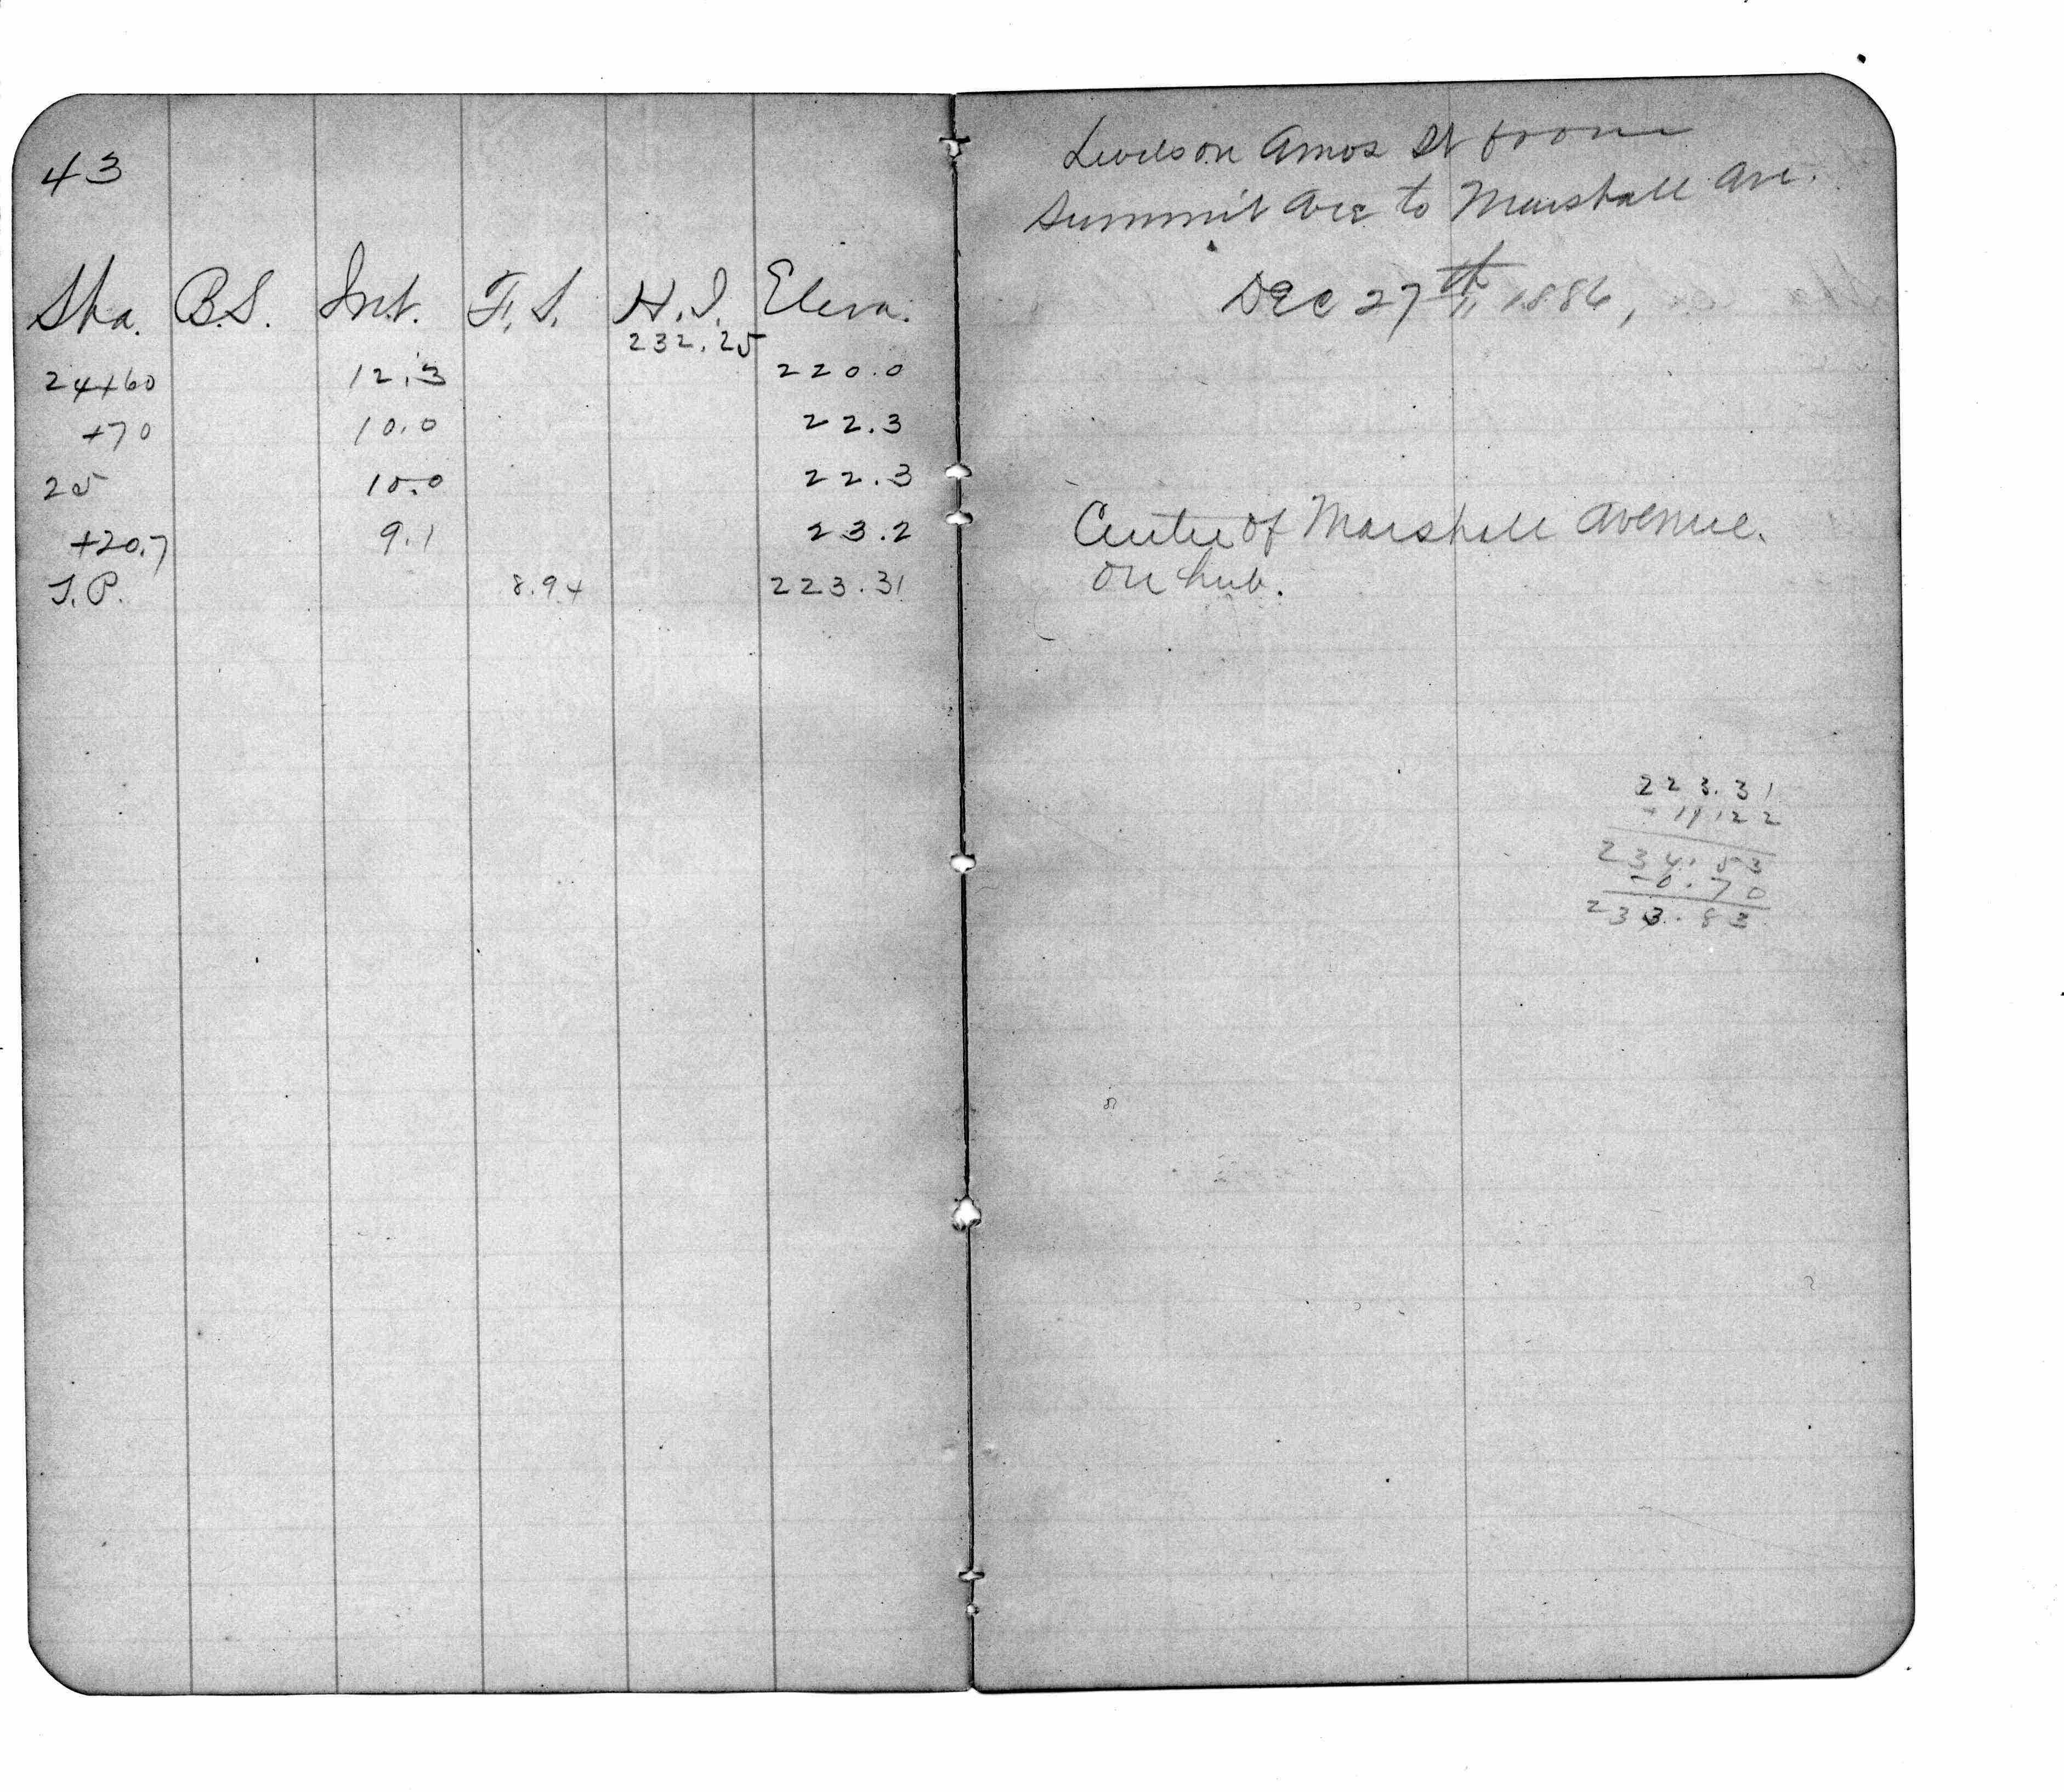 43
Sta. B.S. Int. F.S. H.I. Eleva.
232.25
24+60 12.3 220.0
+70 10.0 22.3
25 10.0 22.3
+20.7 9.1 23.2
T.P. 8.94 223.31
Levels on Amos St from
Summit Ave to Marshall Ave.
Dec 27th, 1886,
Centre of Marshall Avenue.
On hub.
223.31
234.53
-0.70
233.83